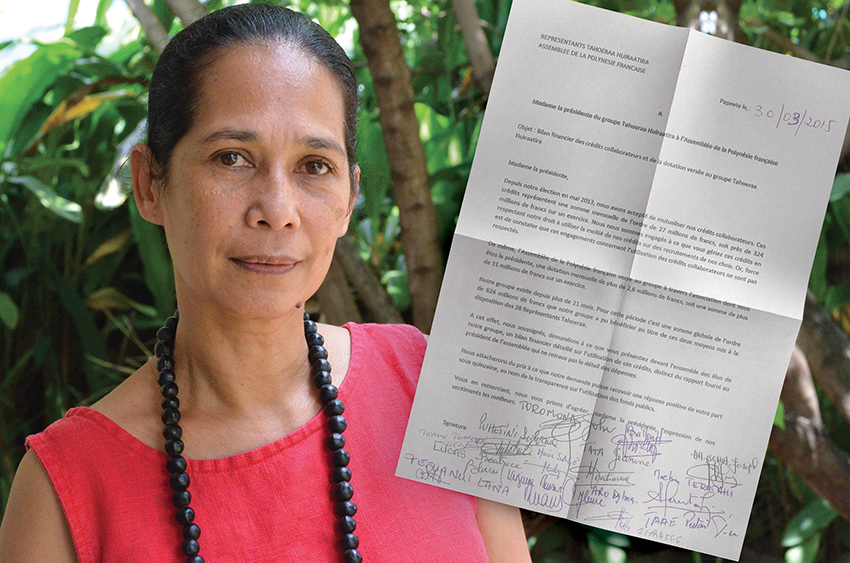 REPRESENTANTS TAHOERAA HUIRAATIRA
ASSEMBLEE DE LA POLYNESIE FRANCAISE
Papeete le, 30/03/2015
A
Madame la présidente du groupe Tahoeraa Huiraatira à l'Assemblée de la Polynésie française
Objet : Bilan financier des crédits collaborateurs et de la dotation versée au groupe Tahoeraa
Huiraatira
Madame la présidente,
Depuis notre élection en mai 2013, nous avons accepté de mutualiser nos crédits collaborateurs. Ces
crédits représentent une somme mensuelle de l'ordre de 27 millions de francs, soit près de 324
millions de francs sur un exercice. Nous nous sommes engagés à ce que vous gériez ces crédits en
respectant notre droit à utiliser la moitié de nos crédits sur des recrutements de nos choix. Or, force
est de constater que ces engagements concernant l'utilisation des crédits collaborateurs ne sont pas
respectés.
De même, l'Assemblée de la Polynésie française verse au groupe à travers l'association dont vous
êtes la présidente, une dotation mensuelle de plus de 2,6 millions de francs, soit une somme de plus
de 31 millions de francs sur un exercice.
Notre groupe existe depuis plus de 21 mois. Pour cette période c'est une somme globale de l'ordre
de 624 millions de francs que notre groupe a pu bénéficier au titre de ces deux moyens mis à la
disposition des 38 Représentants Tahoeraa.
A cet effet, nous soussignés, demandons à ce que vous présentiez devant l'ensemble des élus de
notre groupe, un bilan financier détaillé sur l'utilisation de ces crédits, distinct du rapport fourni au
président de l'assemblée qui ne retrace pas le détail des dépenses.
Nous attacherons du prix à ce que notre demande puisse recevoir une réponse positive de votre part
sous quinzaine, au nom de la transparence sur l'utilisation des fonds publics.
Vous en remerciant, nous vous prions d'agréer, madame la présidente, l'expression de nos
sentiments les meilleurs.
TOROMONA
Signature
LUCAS
LANA
IRIAE